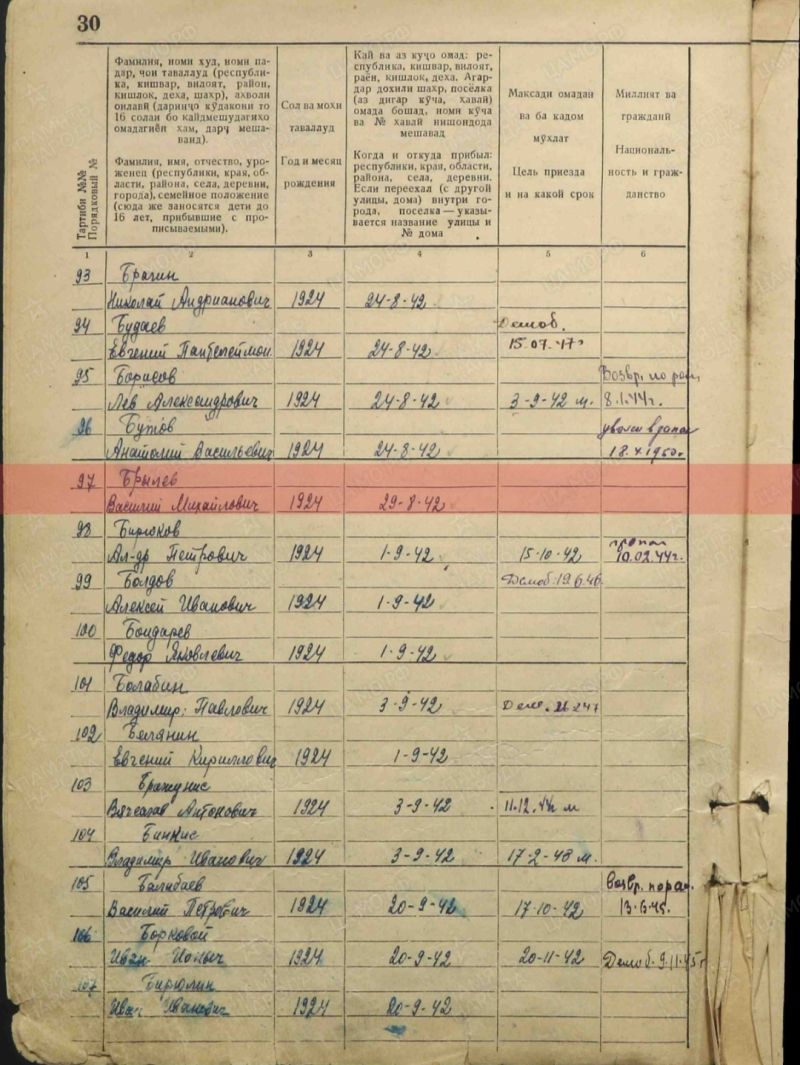 30
Тартиби №№
Порядковый №
Фамилия, номи худ, номи па-
дар, чои таваллуд (республи-
ка, кишвар, вилоят, район,
кишлок, деха, шахр), ахволи
оилавӣ (даринҷо кӯдакони то
16 солаи бо кайдмешудагихо
омадагиён хам, дарҷ меша-
ванд).
Фамилия, имя, отчество, уро-
женец (республики, края, об-
ласти, района, села, деревни,
города), семейное положение
(сюда же заносятся дети до
16 лет, прибывшие с про-
писываемыми).
Сол ва мохи
таваллуд
Год и месяц
рождения
Кай ва аз куҷо омад: ре-
спублика, кишвар, вилоят,
раён, кишлок, деха. Агар-
дар дохили шахр, посёлка
(аз дигар кӯча, хавлӣ)
омада бошад, номи кӯча
ва № хавлӣ нишондода
мешавад
Когда и откуда прибыл:
республики, края, области,
района, села, деревни.
Если переехал (с другой
улицы, дома) внутри го-
рода, поселка — указы-
вается название улицы и
№ дома
Максади омадан
ва ба кадом
мӯхлат
Цель приезда
и на какой срок
Миллият ва
гражданӣ
Националь-
ность и граж-
данство
1 2 3 4 5 6
93 Брагин
Николай Андрианович 1924 24-8-42
94 Будаев Демоб.
Евгений 1924 24-8-42 15.07.47г
95 Борисов Возвр. по ран.
Лев Александрович 1924 24-8-42 3-9-42 м. 8.1.44г.
96 Бутов уволен в запас
Анатолий Васильевич 1924 24-8-42 18.X.1950г
97 Брылев
Василий Михайлович 1924 29-8-42
98 Бирюков пропал
Ал-др Петрович 1924 1-9-42 15-10-42 10.02.44г.
99 Болдов Демоб. 19.6.46.
Алексей Иванович 1924 1-9-42
100 Бондарев
Федор Яковлевич 1924 1-9-42
101 Балабин
Владимир Павлович 1924 3-9-42
102 Белянин
Евгений Кириллович 1924 1-9-42
103
Вячеслав Антонович 1924 3-9-42 м
104 Бинкис
Владимир Иванович 1924 3-9-42 17-2-48 м.
105 Балабаев Возвр. по ран.
Василий Петрович 1924 20-9-42 17-10-42 13.6.45.
106 Борковой
Иван 1924 20-9-42 20-11-42 Демоб. 9.11.45г
107 Бирюлин
Иван Иванович 1924 20-9-42